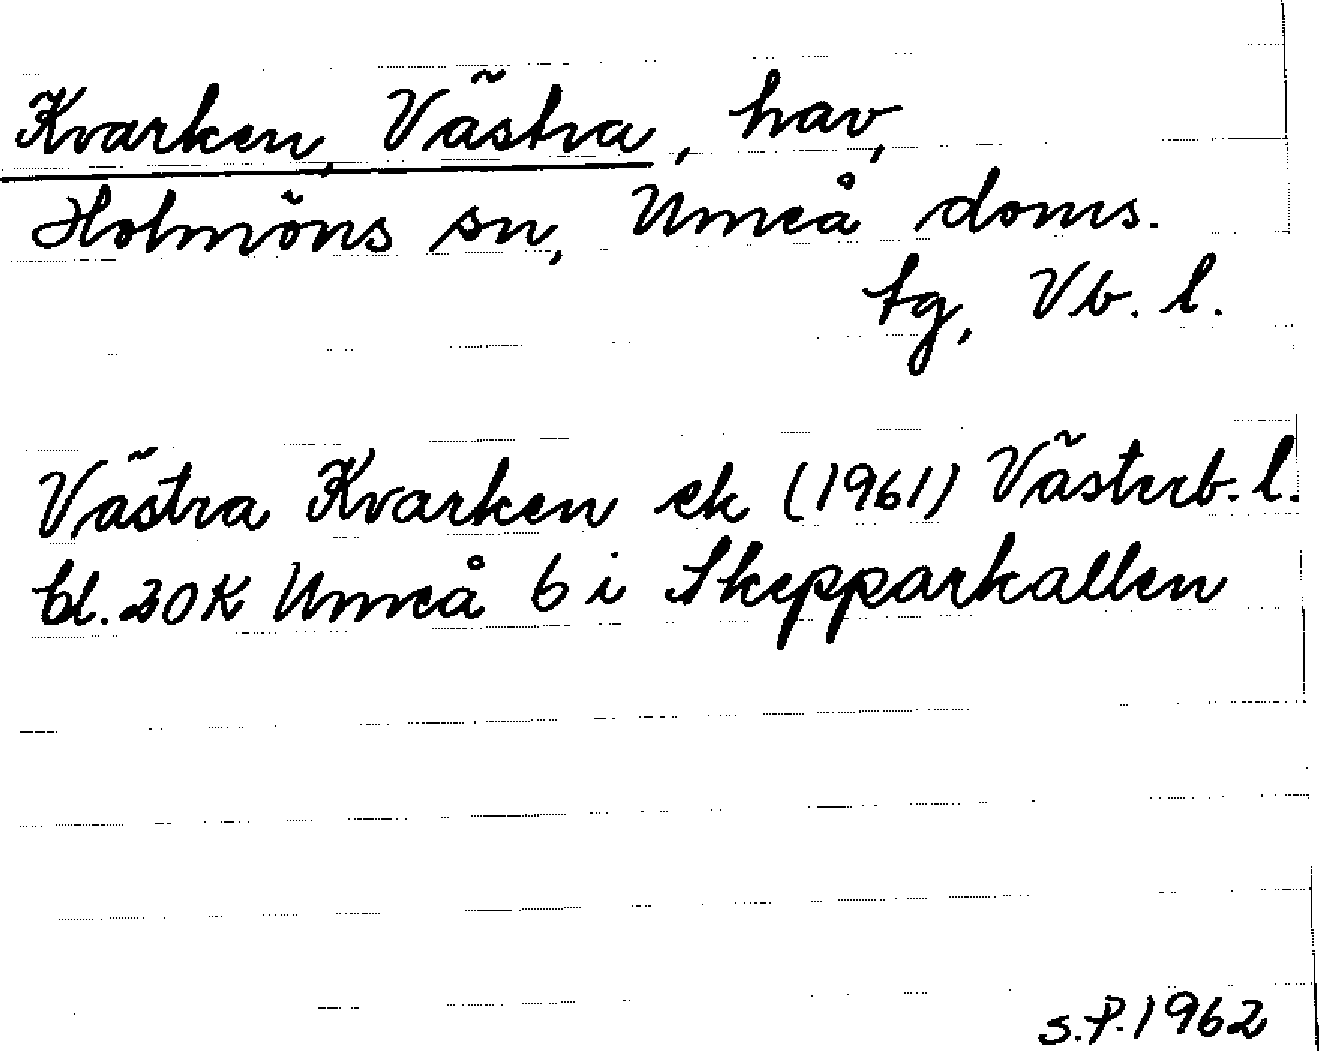 Kvarken, Västra, hav,
Holmöns sn, Umeå doms.
tg, Vb. l.
Västra Kvarken ek (1961) Västerb. l.
bl. 20K Umeå 6 i Skepparkallen
S.P. 1962